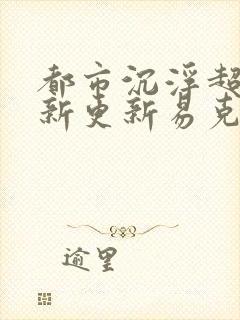 都市沉浮超
新更新易克
逾里